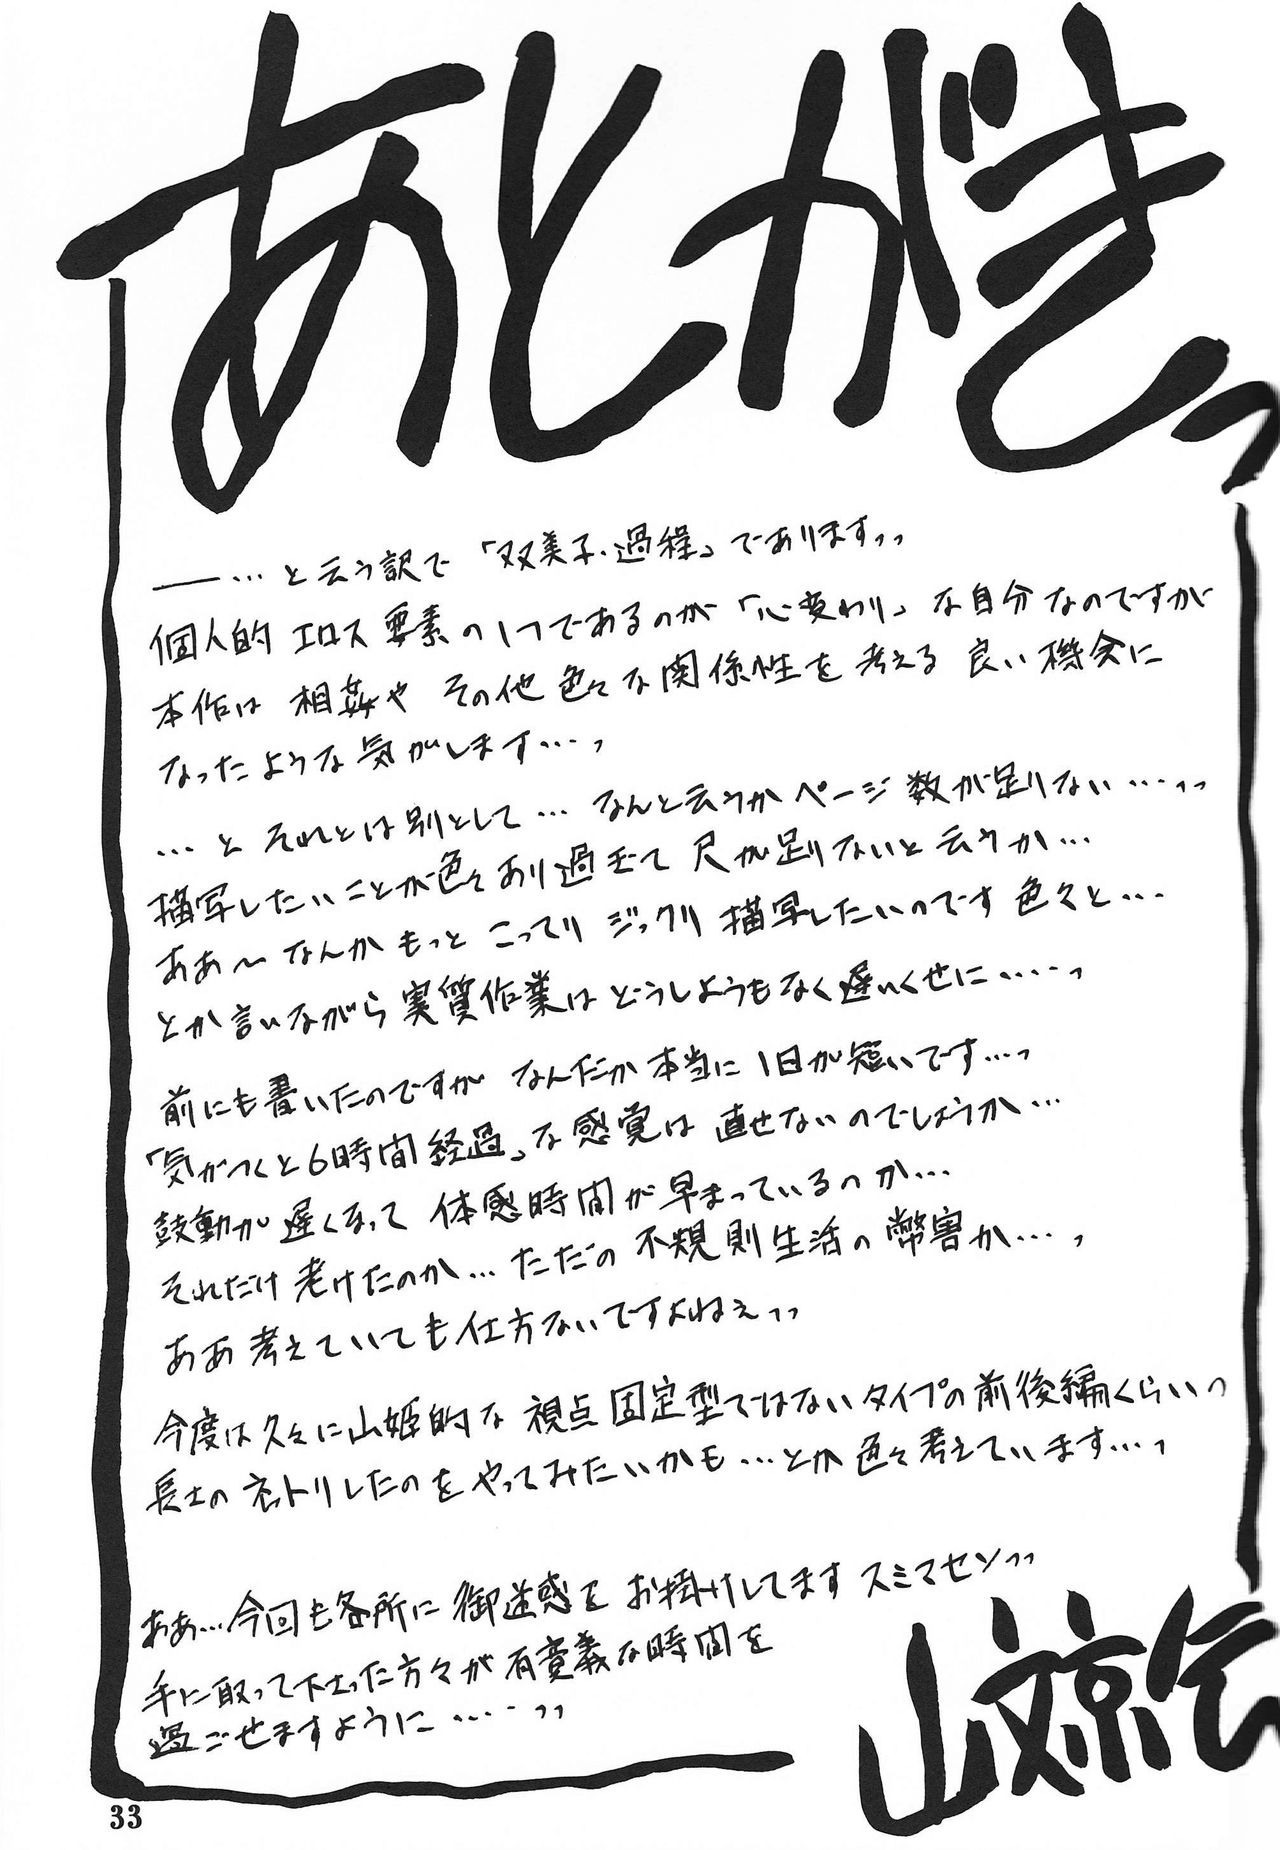 あとがきっ
――…と云う訳で「双美子・過程」でありますッッ
個人的エロス要素の1つであるのが「心変わり」な自分なのですが
本作は相姦やその他色々な関係性を考える良い機会に
なったような気がします…ッ
…とそれとは別として…なんと云うかページ数が足りない…ッッ
描写したいことが色々あり過ぎて尺が足りないと云うか…
ああ～なんかもっとこってりジックリ描写したいのです色々と…
とか言いながら実質作業はどうしようもなく遅いくせに……ッ
前にも書いたのですがなんだか本当に1日が短いです…ッ
「気がつくと6時間経過」な感覚は直せないのでしょうか…
鼓動が遅くなって体感時間が早まっているのか…
それだけ老けたのか…ただの不規則生活の弊害か…ッ
ああ考えていても仕方ないですよねぇッッ
今度は久々に山姫的な視点固定型ではないタイプの前後編くらいっ
長士のネットリしたのをやってみたいかも…とか色々考えています…ッ
ああ…今回も各所に御迷惑をお掛けしてますスミマセンッッ
手に取って下さった方々が有意義な時間を
過ごせますように……ッッ
山文京伝
33